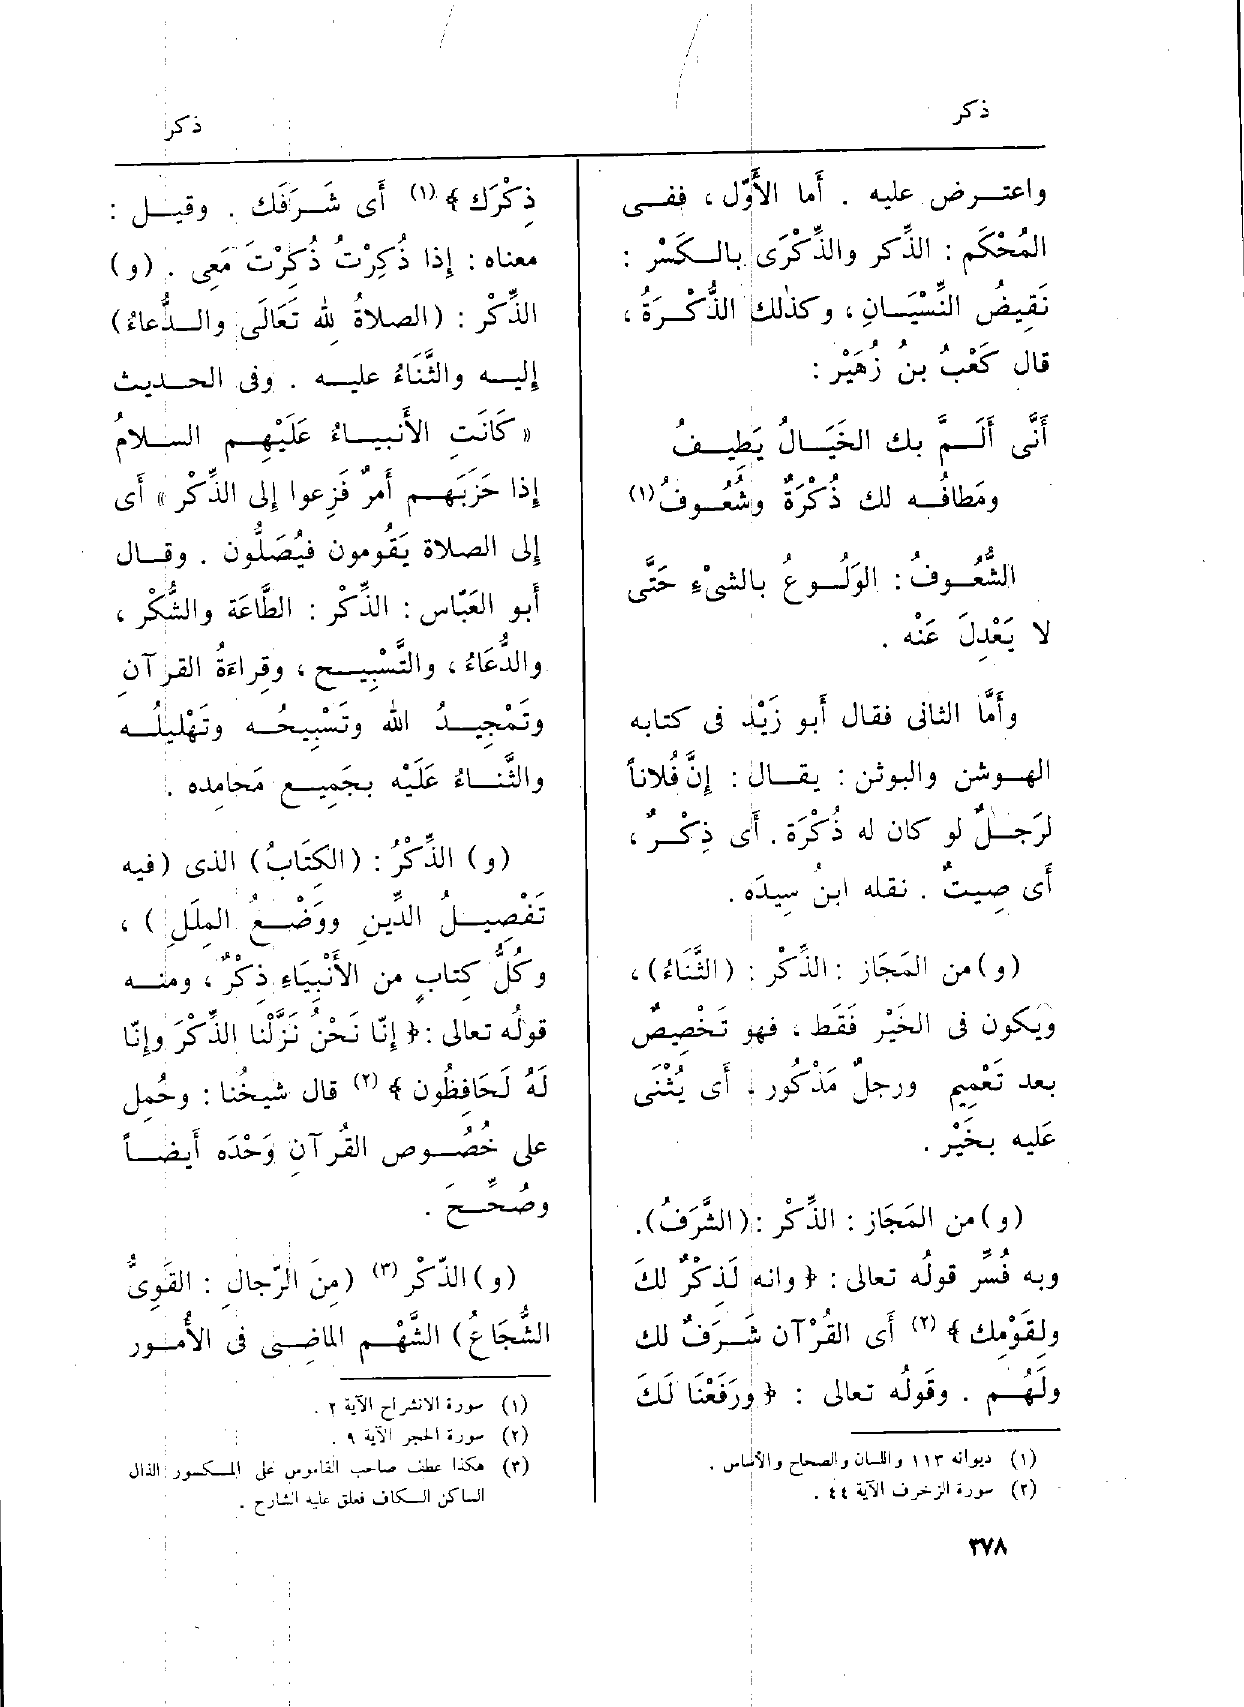 ذكر
ذكر
واعترض عليه . أما الأَوّل ، ففى
المُحْكَم : الذِّكر والذِّكْرَى بالكَسْر :
نَقِيضُ النِّسْيَان ، وكذلك الذُّكْرَةُ ،
قال كَعْبُ بنُ زُهَيْر :
أَنَّى أَلَمَّ بك الخَيَالُ يَطِيفُ
ومَطافُه لك ذُكْرَةٌ وشُعُوفُ (١)
الشُّعُوفُ : الوَلُوعُ بالشىْءِ حَتَّى
لا يَعْدِلَ عَنْه .
وأَمَّا الثانى فقال أَبو زَيْد فى كتابه
الهوشن والبوثن : يقال : إِنَّ فُلاناً
لرَجلٌ لو كان له ذُكْرَة . أَى ذِكْرٌ ،
أَى صِيتٌ . نقله ابنُ سِيدَه .
(و) من المَجَاز : الذِّكْر : (الثَّنَاءُ) ،
ويَكون فى الخَيْر فَقَط ، فهو تَخْصِيصٌ
بعد تَعْمِيم ورجلٌ مَذْكُور . أَى يُثْنَى
عَليه بخَيْر .
(و) من المَجَاز : الذِّكْر : (الشَّرَفُ) .
وبه فُسِّر قولُه تعالى : ﴿ وانه لَذِكْرٌ لكَ
ولِقَوْمِك ﴾ (٢) أَى القُرْآن شَرَفٌ لك
ولَهُم . وقَولُه تعالى : ﴿ ورَفَعْنَا لَكَ
(١) ديوانه ١١٣ واللسان والصحاح والأساس .
(٢) سورة الزخرف الآية ٤٤ .
ذِكْرَك ﴾ (١) أَى شَرَفَك . وقيل :
معناه : إِذا ذُكِرْتُ ذُكِرْتَ مَعِى . (و)
الذِّكْر : (الصلاةُ لله تَعَالَى والدُّعاءُ)
إِليه والثَّنَاءُ عليه . وفى الحديث
« كَانَتِ الأَنبياءُ عَلَيْهِم السلامُ
إِذا حَزَبَهم أَمرٌ فَزِعوا إِلى الذِّكْر » أَى
إِلى الصلاة يَقُومون فيُصَلُّون . وقال
أَبو العَبّاس : الذِّكْر : الطَّاعَة والشُّكْر ،
والدُّعَاءُ ، والتَّسْبِيح ، وقِراءَةُ القرآنِ
وتَمْجِيدُ الله وتَسْبِيحُه وتَهْلِيلُه
والثَّناءُ عَلَيْه بجَمِيع مَحامِده .
(و) الذِّكْرُ : (الكِتَابُ) الذى (فيه
تَفْصِيلُ الدِّينِ ووَضْعُ المِلَلِ ) ،
وكُلُّ كِتابٍ من الأَنْبِيَاءِ ذِكْرٌ ، ومنه
قولُه تعالى : ﴿ إِنّا نَحْنُ نَزَّلْنا الذِّكْرَ وإِنّا
لَهُ لَحَافِظُون ﴾ (٢) قال شيخُنا : وحُمِل
على خُصُوص القُرآنِ وَحْدَه أَيضاً
وصُحِّحَ .
(و) الذِّكْر (٣) (مِنَ الرّجالِ : القَوِىُّ
الشُّجَاعُ) الشَّهْم الماضِى فى الأُمُور
(١) سورة الانشراح الآية ٢ .
(٢) سورة الحجر الآية ٩ .
(٣) هكذا عطف صاحب القاموس على المكسور الذال
الساكن الكاف فعلق عليه الشارح .
٣٧٨